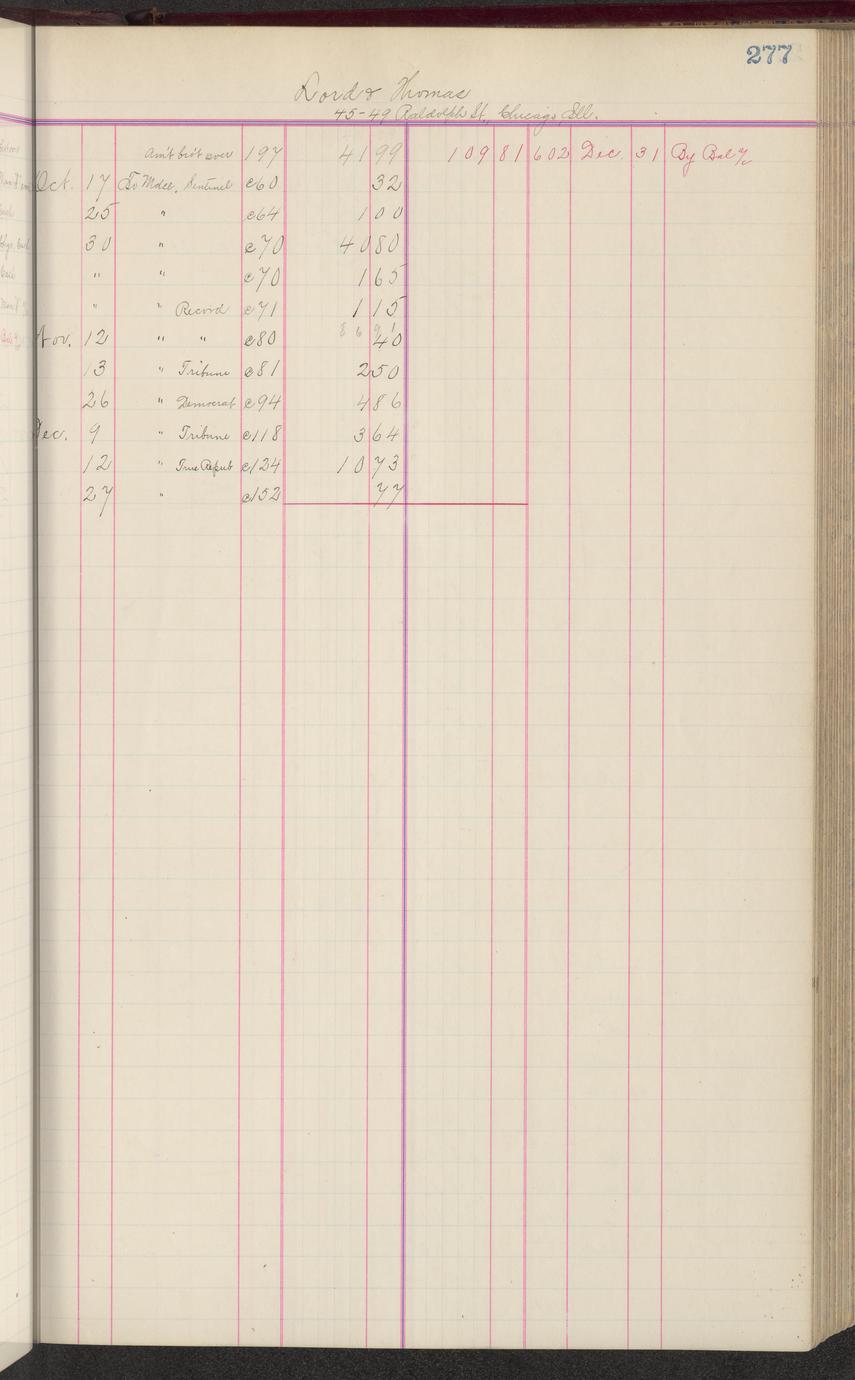 277
Lord & Thomas
45-49 Raldolph St., Chicago, Ill.
Am't bro't over 197 41 99 109 81 602 Dec. 31 By Bal %
Oct. 17 To Mdse. Sentinel c60 32
25 " c64 1 00
30 " c70 40 80
" " c70 1 65
" " Record c71 1 15
86 91
Nov. 12 " " c80 40
13 " Tribune c81 2 50
26 " Democrat c94 4 86
Dec. 9 " Tribune c118 3 64
12 " True Repub c124 10 73
27 " c152 77